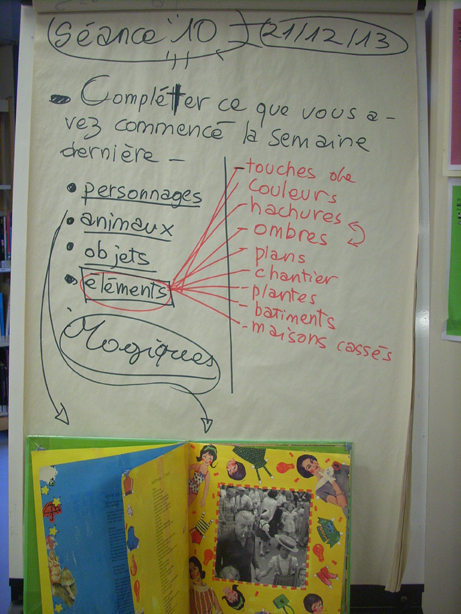 Séance 10 - 21/12/13
- Compléter ce que vous a-
vez commencé la semaine
dernière -
• personnages
• animaux
• objets
• éléments
Magiques
- touches de
couleurs
hachures
- ombres
- plans
- chantier
- plantes
- batiments
- maisons cassés